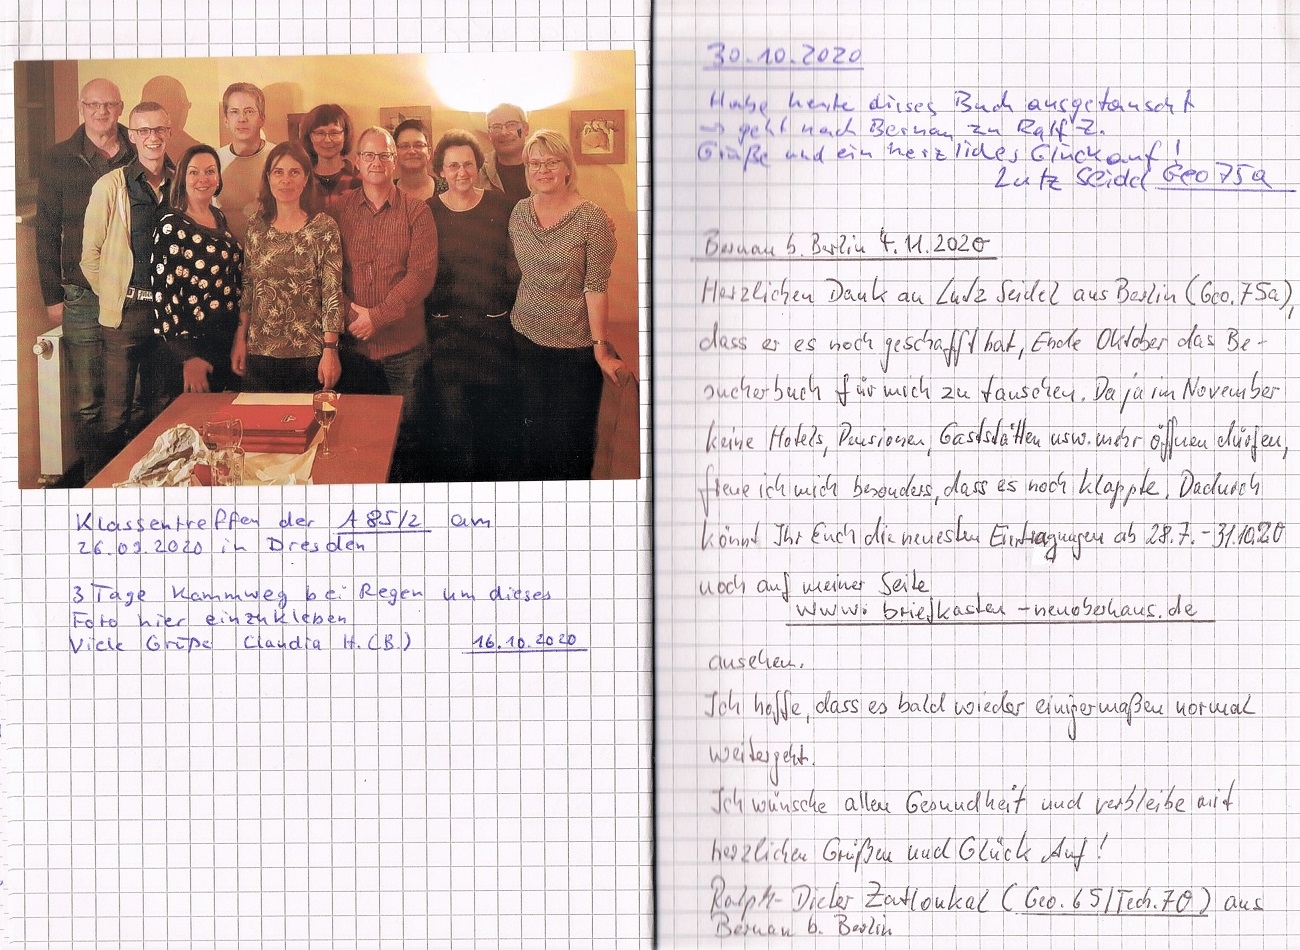 Klassentreffen der A 85/2 am
26.09.2020 in Dresden
3 Tage Kammweg bei Regen um dieses
Foto hier einzukleben
Viele Grüße Claudia H. (B.) 16.10.2020
30.10.2020
Habe heute dieses Buch ausgetauscht
→ geht nach Bernau zu Ralf Z.
Grüße und ein herzliches Glück auf!
Lutz Seidel Geo 75a
Bernau b. Berlin 4.11.2020
Herzlichen Dank an Lutz Seidel aus Berlin (Geo. 75a),
dass er es noch geschafft hat, Ende Oktober das Be-
sucherbuch für mich zu tauschen. Da ja im November
keine Hotels, Pensionen, Gaststätten usw. mehr öffnen dürfen,
freue ich mich besonders, dass es noch klappte. Dadurch
könnt Ihr Euch die neuesten Eintragungen ab 28.7. - 31.10.20
noch auf meiner Seite
www. briefkasten-neuoberhaus.de
ansehen.
Ich hoffe, dass es bald wieder einigermaßen normal
weitergeht.
Ich wünsche allen Gesundheit und verbleibe mit
herzlichen Grüßen und Glück Auf!
Ralph-Dieter Zatloukal (Geo. 65/Tech. 70) aus
Bernau b. Berlin